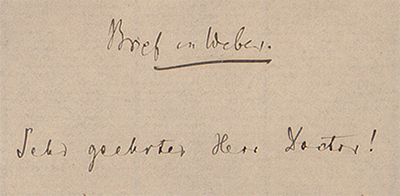 Brief an Weber.
Sehr geehrter Herr Doctor!